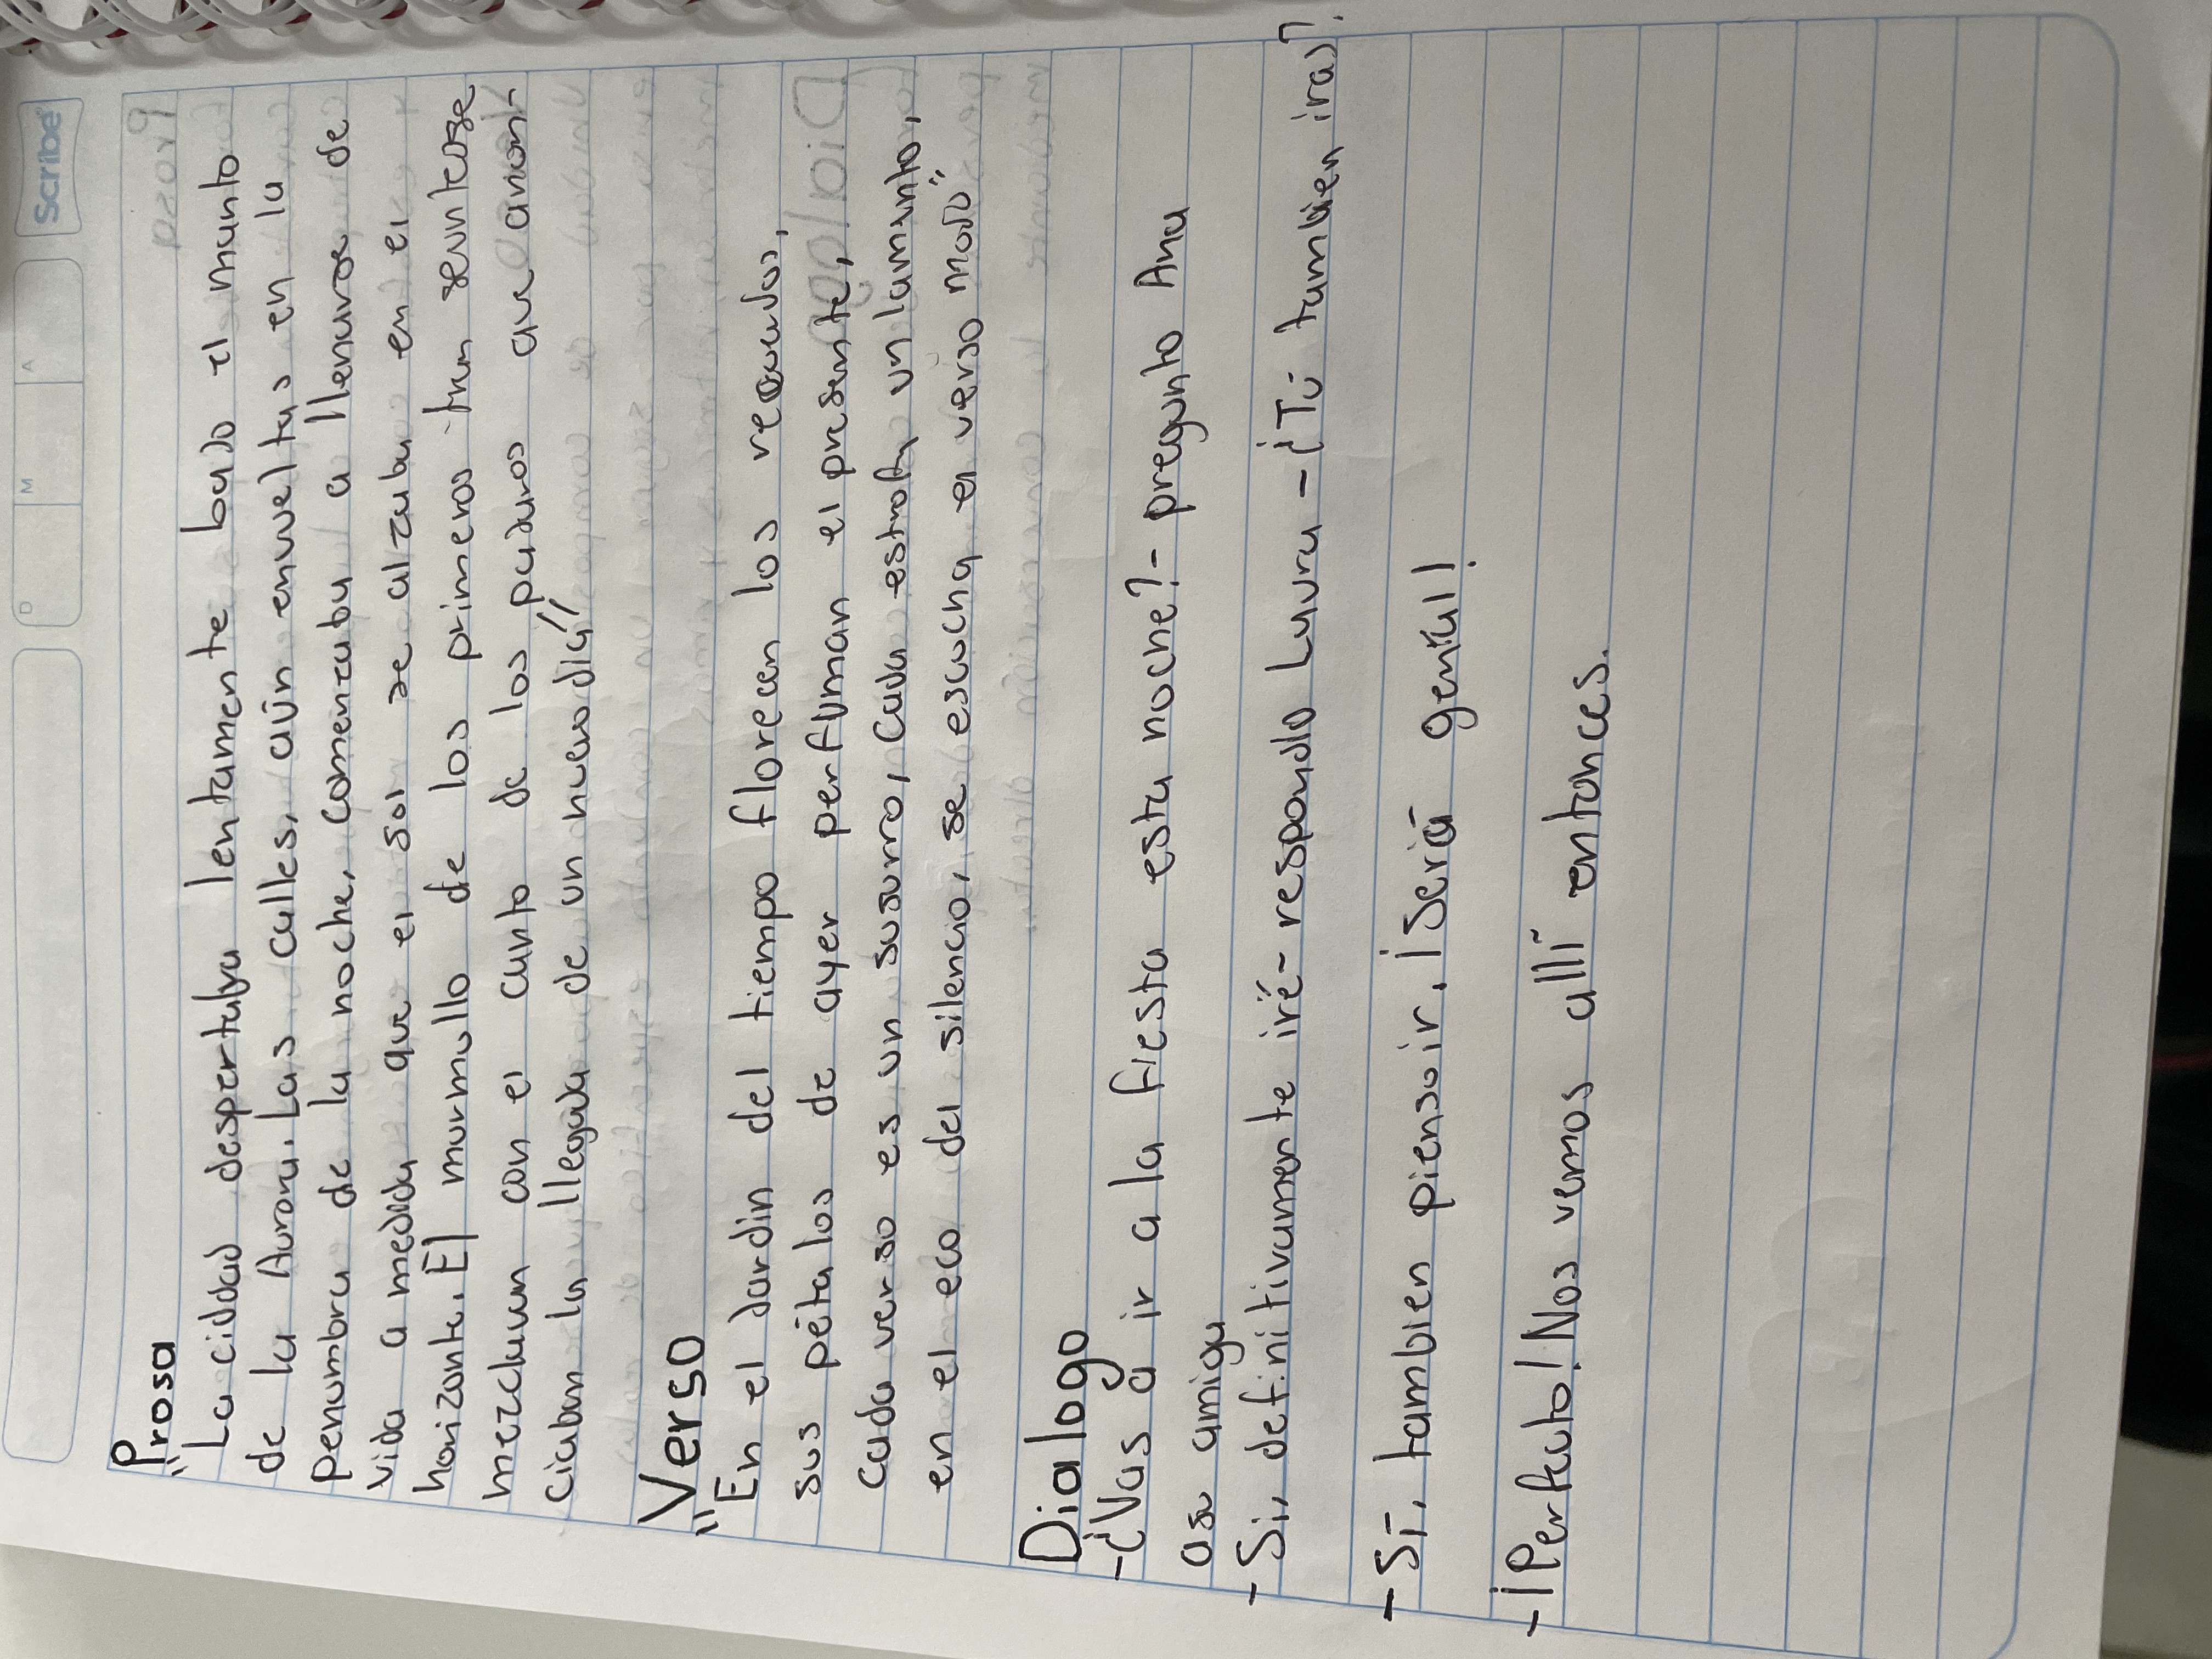 Scribe
D M A
Prosa
"La cidad despertaba lentamente bajo el manto
de la Aurora. Las calles, aún envueltas en la
penumbra de la noche, comenzaba a llenarse de
vida a medida que el sol se alzaba en el
horizonte. El murmullo de los primeros tran seuntes se
mezclaban con el canto de los pajaros que anun-
ciaban la llegada de un nuevo día"
Verso
"En el jardin del tiempo florecen los recuerdos,
sus pétalos de ayer perfuman el presente,
cada verso es un susurro, cada estrofa un lamento,
en el eco del silencio, se escucha el verso mozo"
Dialogo
-¿Vas a ir a la fiesta esta noche?- pregunto Ana
a su amiga
-Si, definitivamente iré- respondio Laura -¿Tú tambien iras?
-Sí, tambien pienso ir. ¡Será genial!
-¡Perfecto! Nos vemos allí entonces.